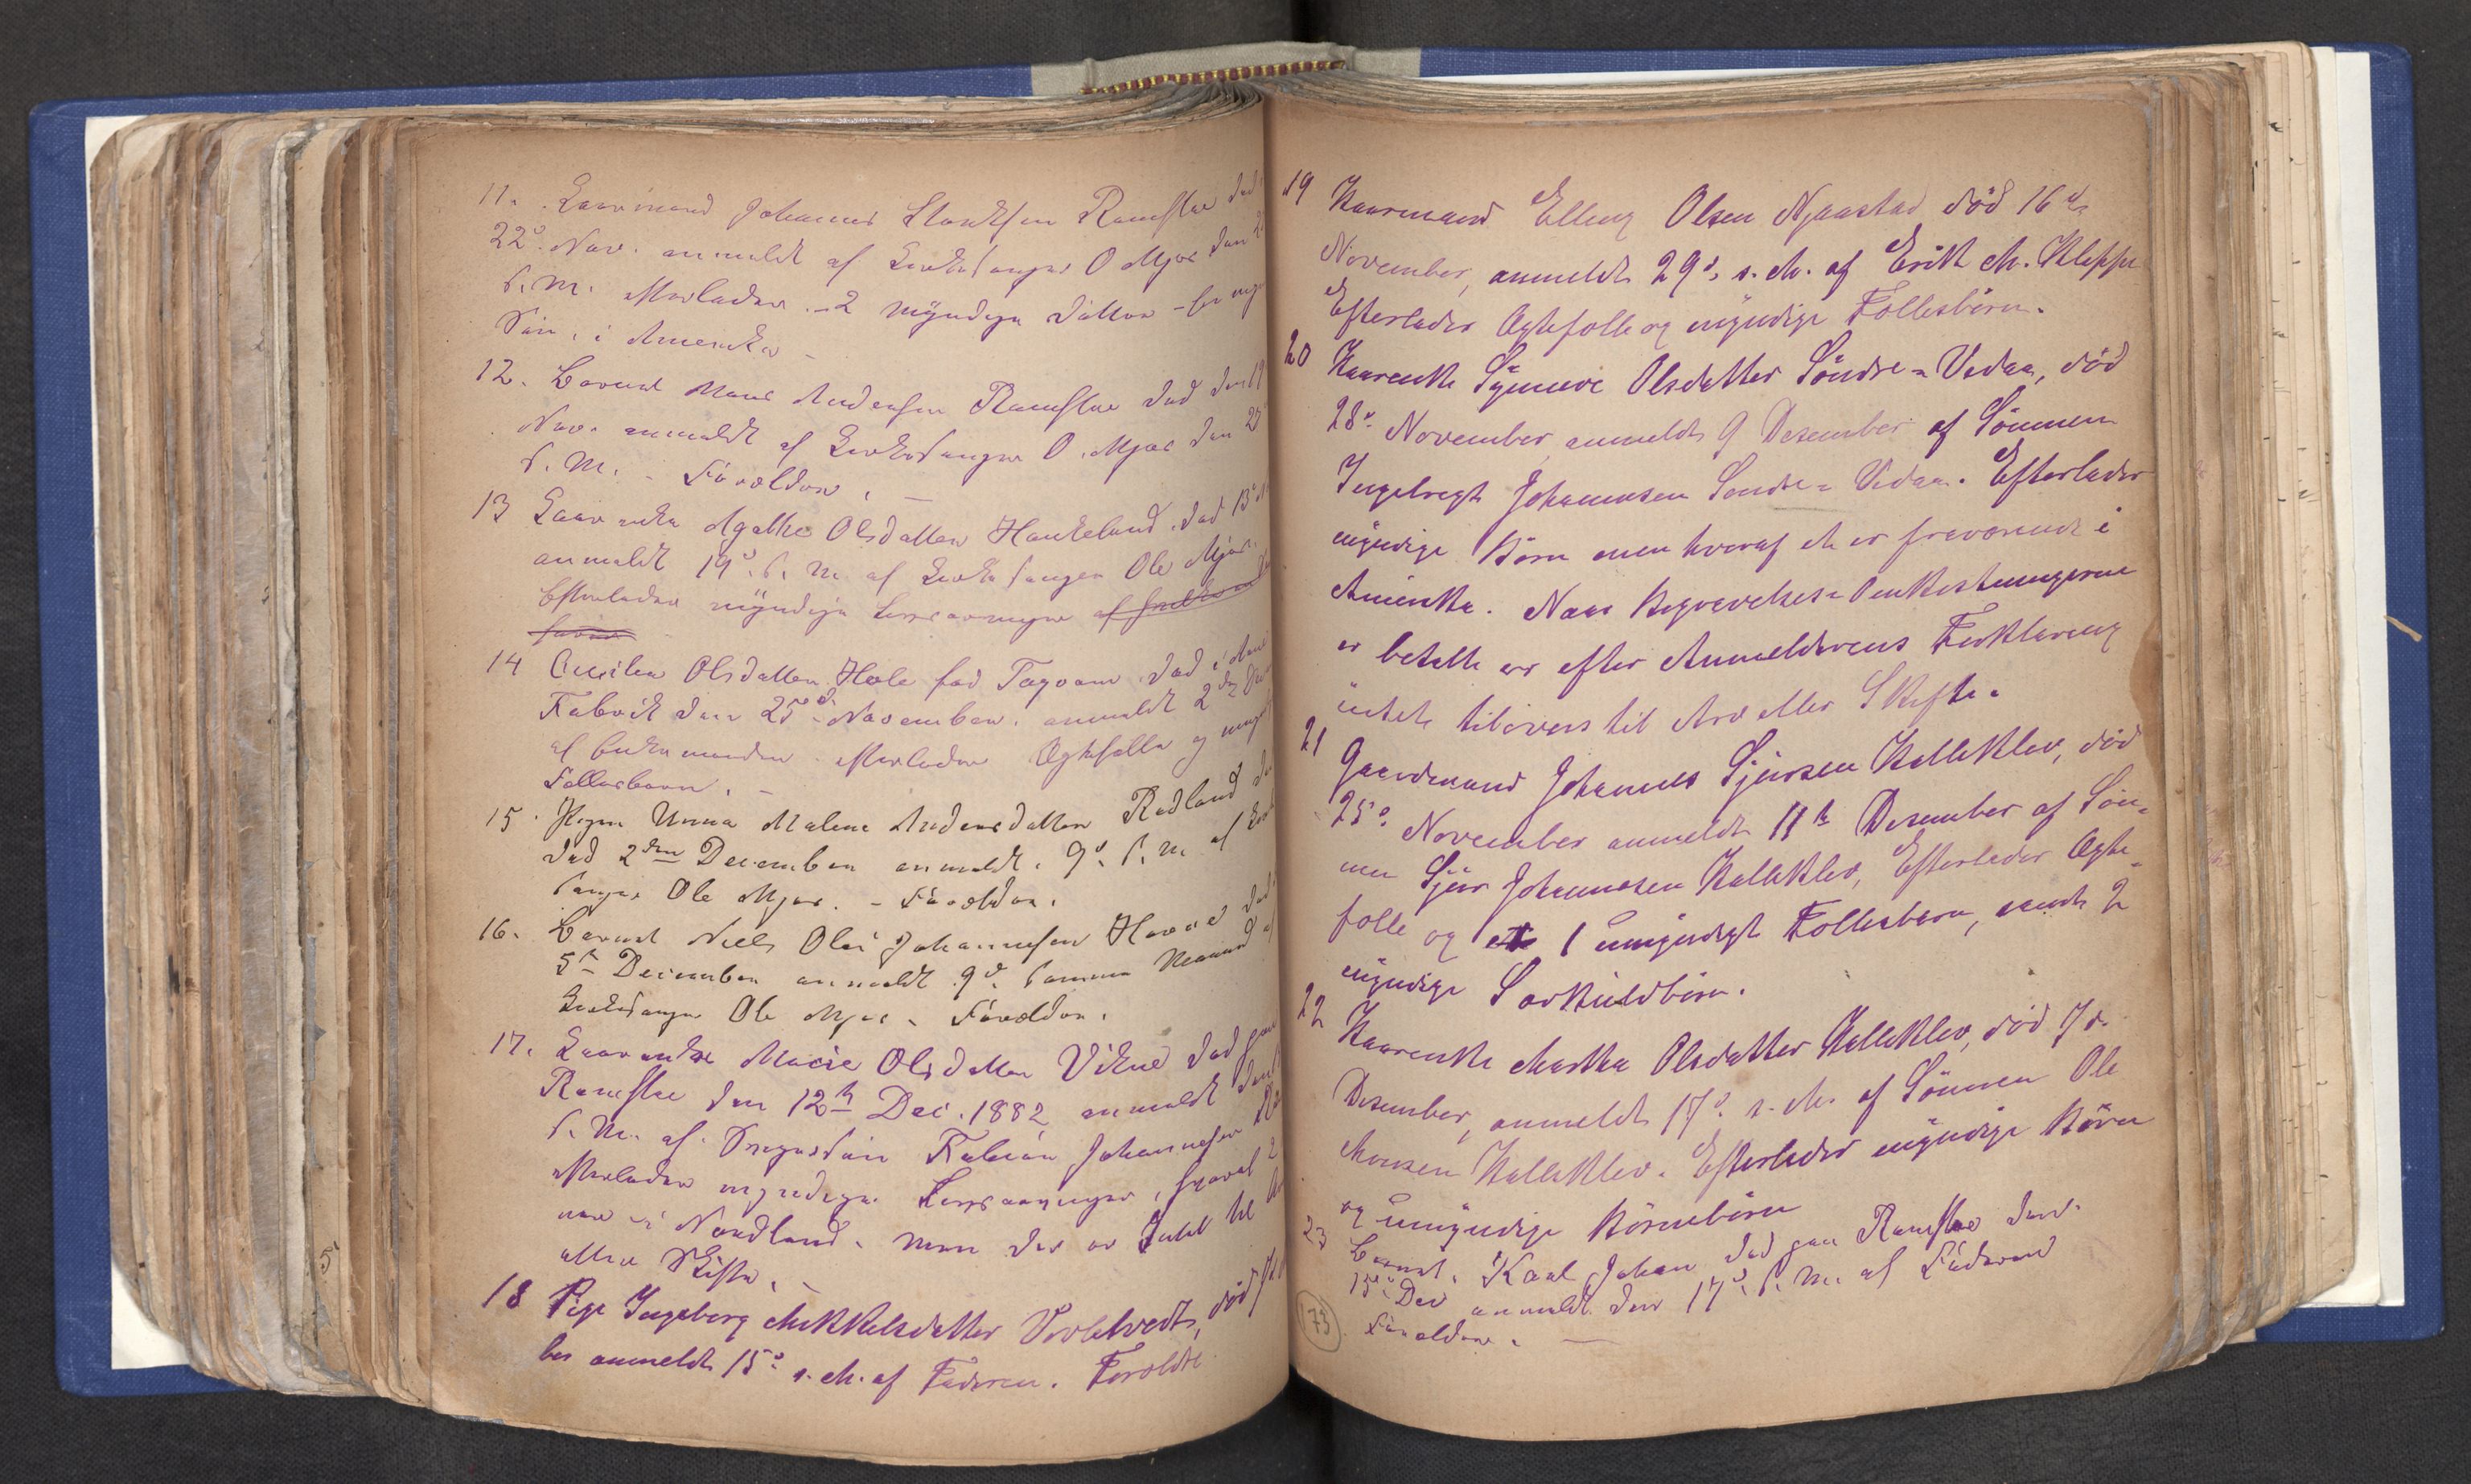 11. Kaarmand Johannes Ramslie død
22d. Nov. anmeldt af Kirkesanger O Mjøs den
s. M. efterlader - 2 myndige Døttre - 
Søn, i Amerika -
12. Barnet Mons Andersen Ramslie død den 19
Nov. anmeldt af Kirkesanger O. Mjøs den 25
s. M. - Forældre. -
13 Kaarenke Agathe Olsdatter Haukeland. død 13d
anmeldt 19d. s. M. af Kirkesanger Ole Mjøs.
Efterlader myndige Livsarvinger af
14 Cecilia Olsdatter Hole fød død i
Fabrik den 25d. November. anmeldt 2den
af Enkemanden. efterlader Ægtefælle og
Fællesbørn. -
15. Pigen Anna Malene Andersdatter Rødland
død 2den December anmeldt. 9d. s. M. af
sanger Ole Mjøs. - Forældre.
16. Barnet Niels Olai Johannesen død
5te December anmeldt 9d. samme Maaned af
Kirkesanger Ole Mjøs - Forældre.
17. Kaarenke Marie Olsdatter Vikne død paa
Ramslie den 12te Dec. 1882 anmeldt den
s. M. af Fabian Johannesen
efterlader myndige Livsarvinger, hvoraf 2
ere i Nordland. men der er Intet til
eller Skifte. -
18 Pige Ingeborg Mikkelsdatter død
ber anmeldt 15d. s. M. af Faderen. Forældre
19 Kaarmand Elling Olsen Njaastad død 16de
November, anmeldt 29d. s. M. af Erik M. Kleppe
Efterlader Ægtefolle og myndige Follesbørn.
20 Kaarenke Synneve Olsdatter Søndre-Vedaa, død
28d. November anmeldt 9 Desember af Sønnen
Ingebregt Johannesen Søndre-Vedaa. Efterlader
myndige Børn men hvoraf et er fraværende i
Amerika. Naar Begravelses-Omkostningerne
er betalte er efter Anmelderens Forklaring
intet tilovers til Arv eller Skifte.
21 Gaardmand Johannes Sjursen Kalleklev, død
25d. November anmeldt 11te Desember af Søn-
nen Sjur Johannesen Kalleklev, Efterlader Ægte-
folle og et 1 umyndigt Follesbarn, samt 2
myndige Sarkuldbørn.
22 Kaarenke Martha Olsdatter Kalleklev, død 7d.
Desember, anmeldt 17d. s. M. af Sønnen Ole
Monsen Kalleklev. Efterlader myndige Børn
og umyndige Børnebørn
23 Barnet. Karl Johan død paa Ramslie den
15d. Dec anmeldt den 17d. s. M. af Faderen
Forældre. -
173